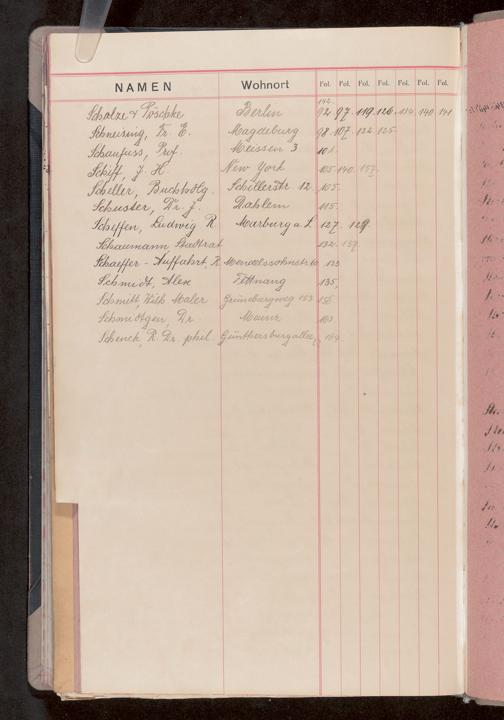 NAMEN Wohnort Fol. Fol. Fol. Fol. Fol. Fol. Fol.
142.
Scholze & Pöschke Berlin 92. 97. 119. 126. 134. 140. 141
Schneising, Dr. E. Magdeburg 98. 107. 122. 125.
Schaufuss, Prof. Meissen 3 101.
Schiff, J. H. New York 105. 140. 157.
Scheller, Buchhdlg. Schillerstr. 12 105.
Schuster, Dr. J. Dahlem 115.
Scheffen, Ludwig R. Marburg a. L. 127. 129.
Schaumann, Stadtrat 132. 157.
Schaeffer-Auffahrt, R. Mendelssohnstr. 133
Schmidt, Alex Tettnang 135,
Schmitt, Maler Grüneburgweg 153
Schmidtgen, Dr. Mainz 163.
Schenck R. Dr. phil. Günthersburgallee 164